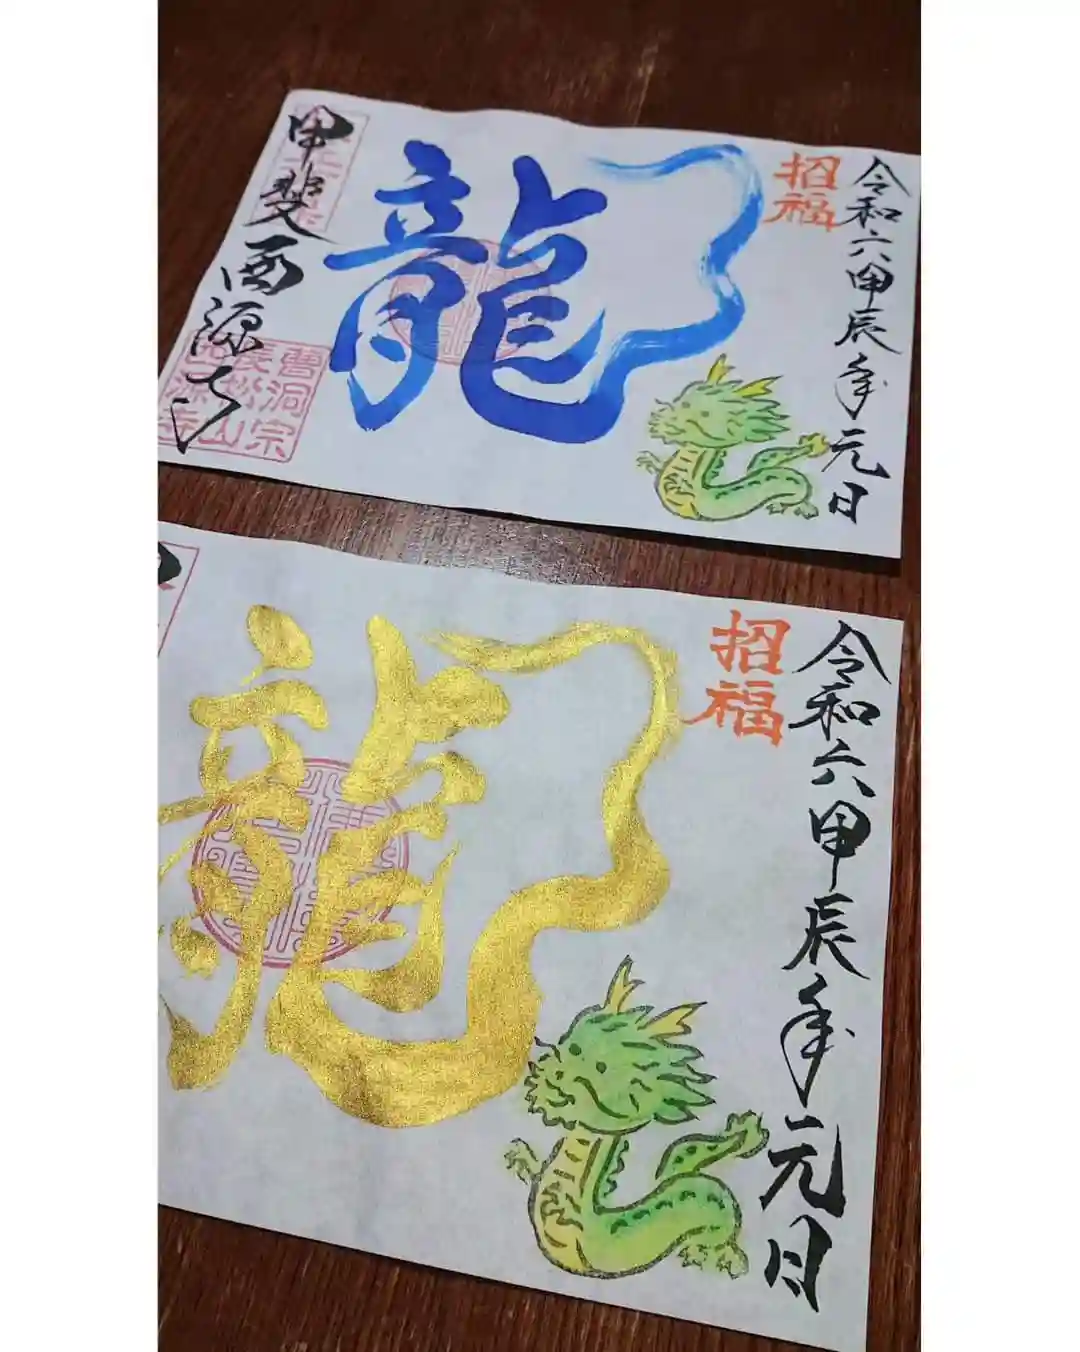 令和六甲辰年元日
招福
龍
甲斐西源寺
曹洞宗
長松山
西源寺
令和六甲辰年元日
招福
龍